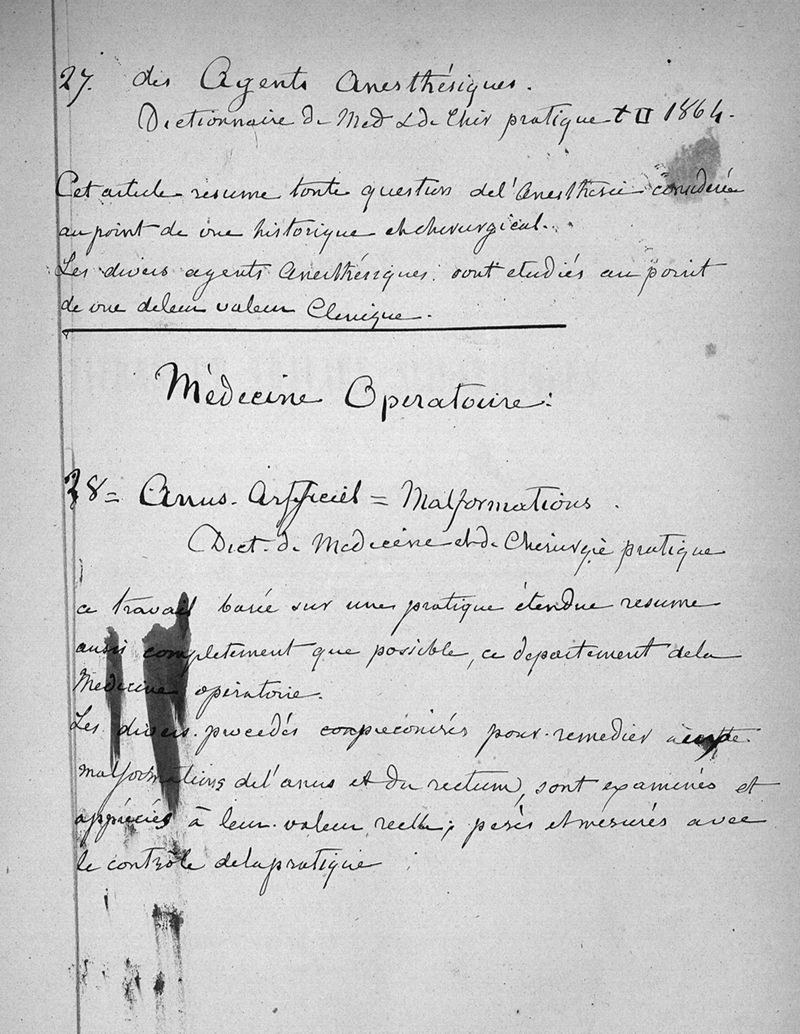 27. des Agents Anesthésiques.
Dictionnaire de Med & de Chir pratique t II 1864.
Cet article resume toute question de l'Anesthesie considerée
au point de vue historique et cherurgical.
Les divers agents Anesthésiques sont etudiés au point
de vue de leur valeur Clenique.
Médecine Operatoire:
28 = Anus Artificiel = Malformations.
Dict. de Medecine et de Cherurgie pratique
ce travail basée sur une pratique étendue resume
aussi completement que possible, ce departement de la
Medecine opératoire.
Les divers procedés preconisés pour remedier
malformations de l'anus et du rectum, sont examinés et
appréciés à leur valeur reelle; pesés et mesurés avec
le contrôle de la pratique